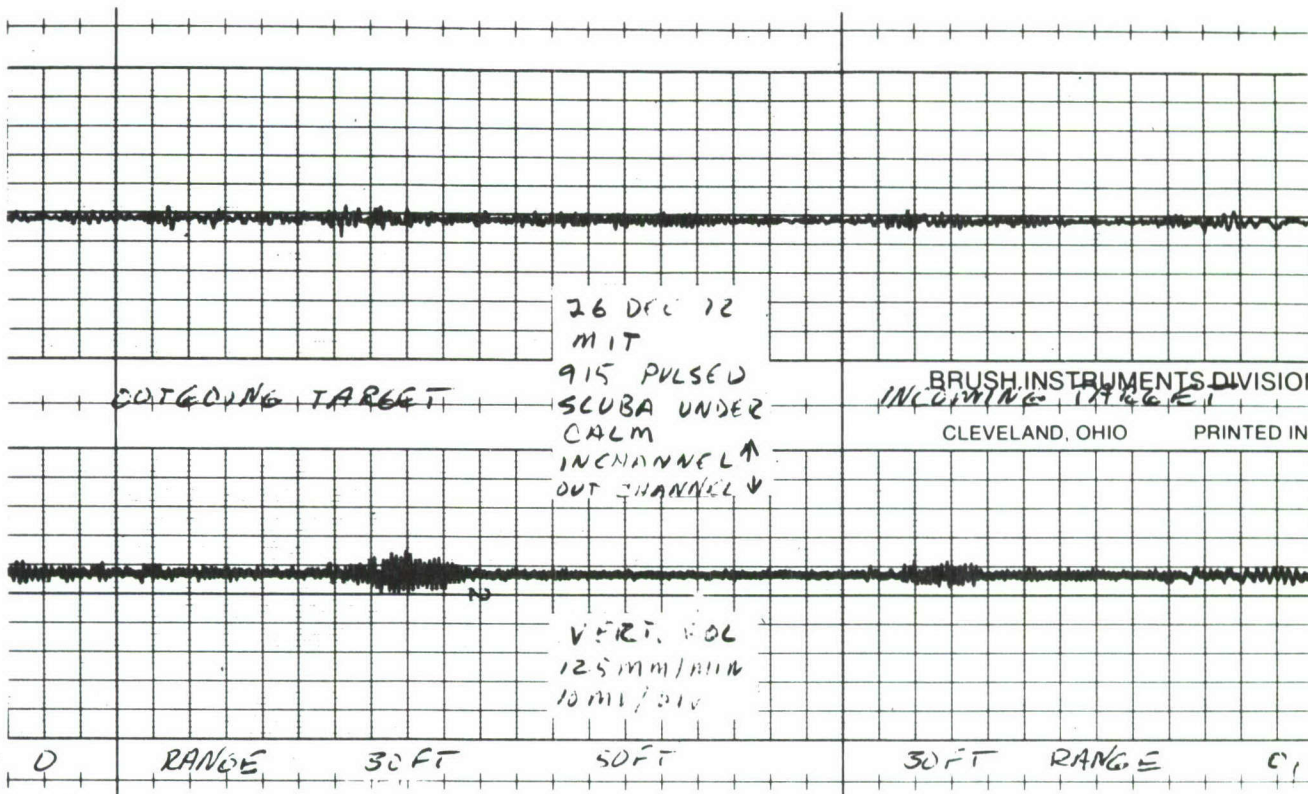 26 DEC 72
MIT
915 PULSED
SCUBA UNDER
CALM
INCHANNEL ↑
OUT CHANNEL ↓
OUTGOING TARGET
BRUSH INSTRUMENTS DIVISION
INCOMING TARGET
CLEVELAND, OHIO PRINTED IN
N
VERT. POL
125 mm/MIN
10 MV/DIV
0 RANGE 30FT 50FT 30FT RANGE 0